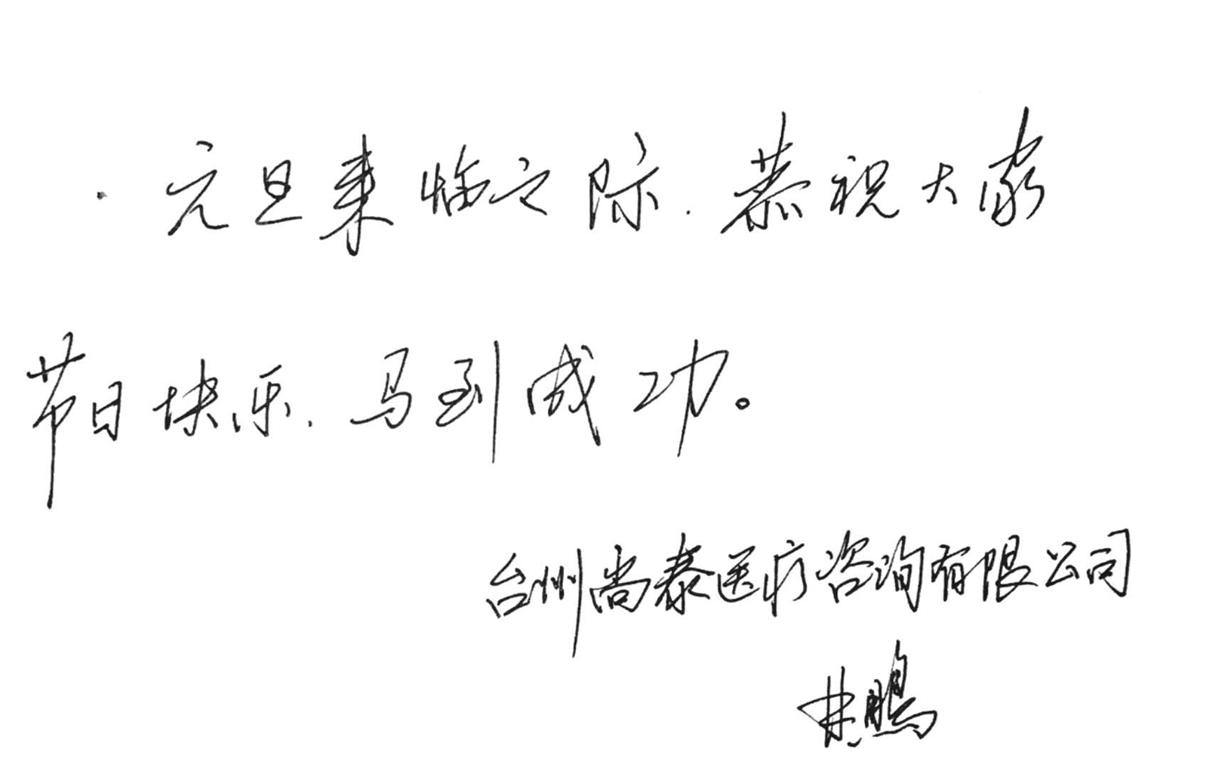 元旦来临之际.恭祝大家
节日快乐.马到成功。
台州尚泰医疗咨询有限公司
鹏